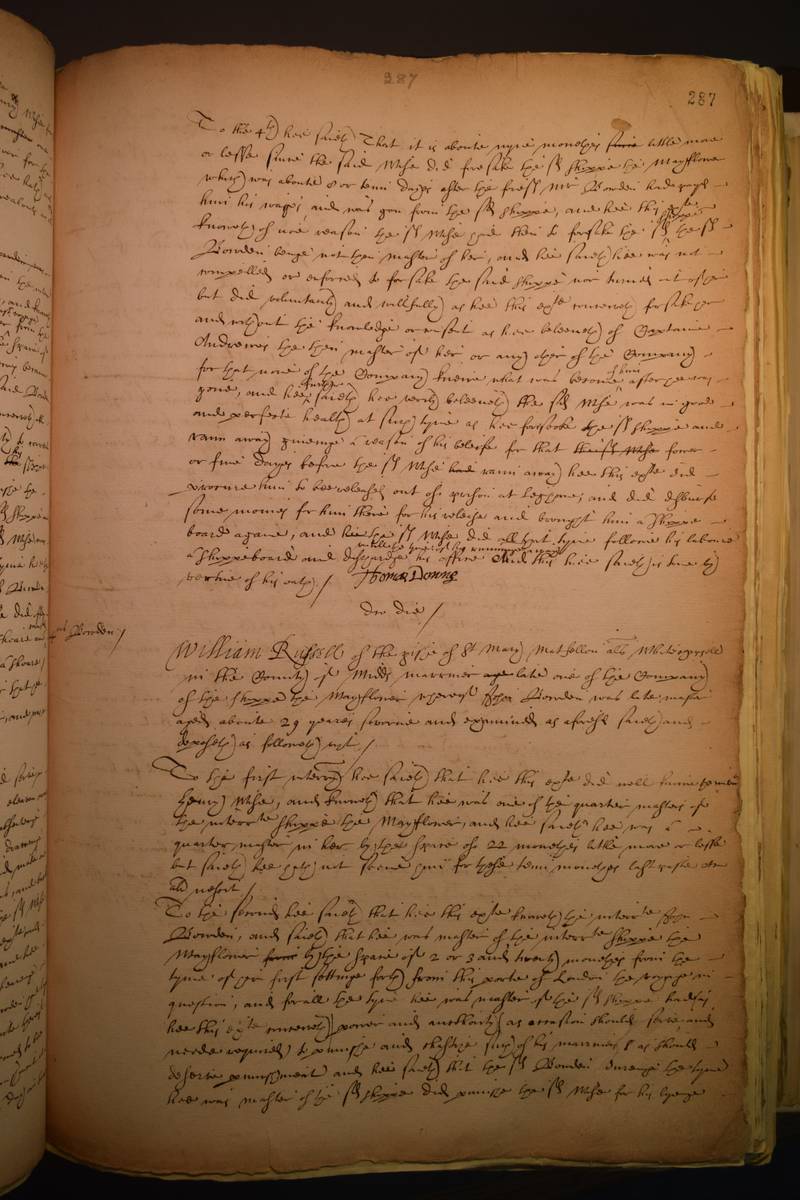 287
287
To the 4th hee saieth That it is aboute nyne monethes little more
or lesse since the said Wise did forsake the sd shippe the Mayflower
which was aboute 8 or tenn dayes after the sd mr Bowden had payd
him his wages, and was gon from the sd shippe, and hee this exte
knoweth of noe reason the sd Wise had then to forsake the sd shippe the sd
Bowden beinge not then master of her, and hee saieth hee was not
compelled or enforced to forsake the said shippe nor turned out of her
but did voluntarily and willfully as hee this exte conceiveth forsake her
and without the knowledge or consent as hee beleeveth of Captaine
Andrewes the then master of her or any other of the Company
for that none of the Company knewe what was become of him after he was
gone, and hee further saieth hee verily beleeveth the sd Wise was in good
and perfecte health at such tyme as hee forsooke the sd shippe and
rann away givinge a reason of his beleife for that the sd Wise fower
or five dayes before the sd Wise rann away hee this exte did
procure him to bee released out of prison at Leghorne, and did disburse
some moneys for him there for his release and brought him a shipp
board againe, and the sd Wise did all that tyme followe his labour
a shippeboard and discharge his office untill the tyme of his runninge away And this hee saieth is true by
vertue of his oath./ Thomas Donne
die die /
Bowden /
William Russell of the pishe of St Mary Matfellon als Whitechappell
in the County of Midds marriner late one of the Company
of the shippe the Mayflower whereof John Bowden was late master
aged aboute 29 yeares sworne and examined as aforesd saieth and
deposeth as followeth vizt /
To the first interry hee saieth that hee this exte did well knowe
Henry Wise, and knoweth that hee was one of the quarter masters of
the interrte shippe the Mayflower, and hee saieth hee was a
quarter master in her by the space of 22 monethes little more or lesse
but saieth hee hath not seene him for these tenn monethes last paste
ad nescit /
To the second hee saieth that hee this exte knoweth the interrte John
Bowden, and saieth that hee was master of the interrte shippe the
Mayflower by the space of 2 or 3 and twenty monethes from the
tyme of her first settinge forth from this porte of London the voyage in
question, and for all the tyme hee was master of the sd shippe had as
hee this exte conceiveth power and authority as occasion should serve and
neede required to punishe and chastize such of his marriners as should
deserve punishment and hee saieth that the sd Bowden duringe the tyme
hee was master of the sd shippe did punishe the sd Wise for his